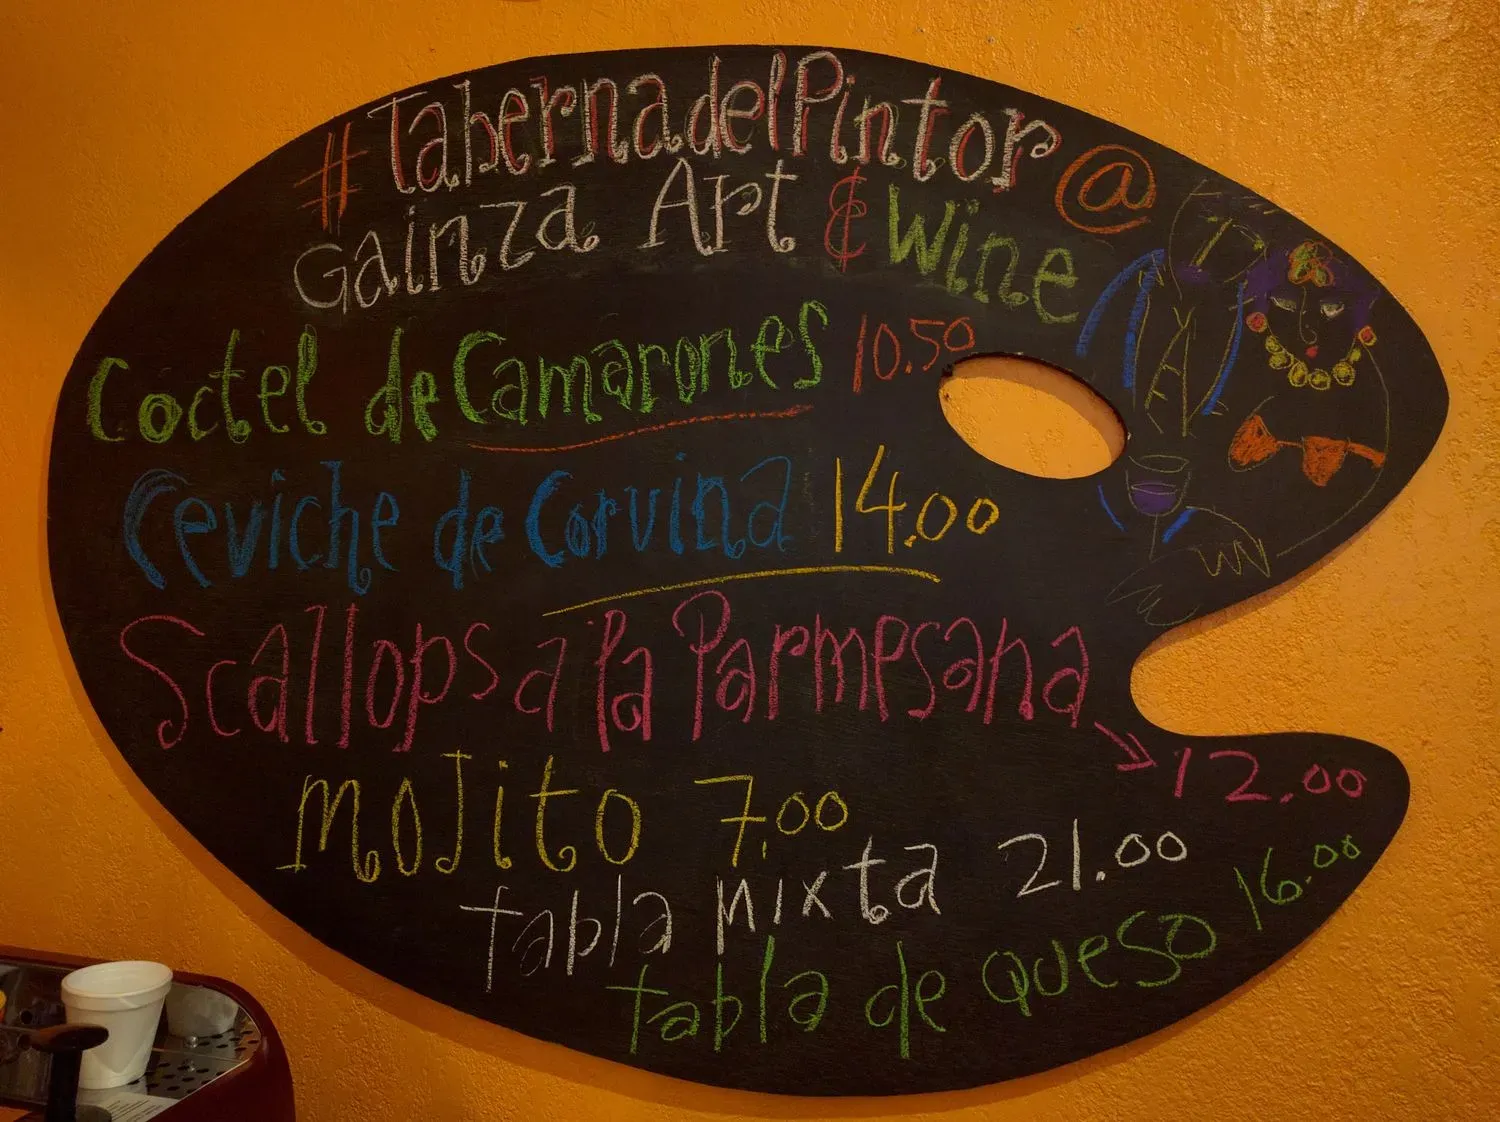 #TabernadelPintor @
Gainza Art & Wine
Coctel de Camarones 10.50
Ceviche de Corvina 14.00
Scallops a la Parmesana → 12.00
Mojito 7.00
tabla Mixta 21.00
tabla de queso 16.00